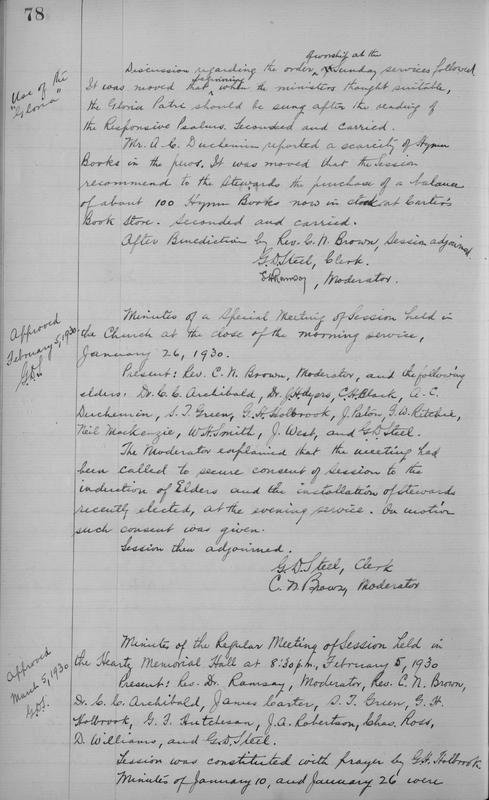 78
Use of the
"Gloria"
Discussion regarding the order of worship at the Sunday services followed.
It was moved that beginning when the ministers thought suitable,
the Gloria Patri should be sung after the reading of
the Responsive Psalms. Seconded and carried.
Mr. A. C. Duchemin reported a scarcity of Hymn
Books in the pews. It was moved that the Session
recommend to the Stewards the purchase of a balance
of about 100 Hymn Books now in stock at Carter's
Book Store. Seconded and carried.
After Benediction by Rev. C. N. Brown, Session adjourned.
G. D. Steel, Clerk.
Ramsay, Moderator.
Approved
February 5, 1930
G.D.S.
Minutes of a Special Meeting of Session held in
the Church at the close of the morning service,
January 26, 1930.
Present: Rev. C. N. Brown, Moderator, and the following
elders: Dr. C. C. Archibald, Dr. Ayers, C. H. Black, A. C.
Duchemin, S. T. Green, G. H. Holbrook, J. Paton, G. W. Ritchie,
Neil MacKenzie, W. H. Smith, J. West, and G. D. Steel.
The Moderator explained that the meeting had
been called to secure consent of Session to the
induction of Elders and the installation of stewards
recently elected, at the evening service. On motion
such consent was given.
Session then adjourned.
G. D. Steel, Clerk
C. N. Brown, Moderator
Approved
March 5, 1930
G.D.S.
Minutes of the Regular Meeting of Session held in
the Heartz Memorial Hall at 8:30 p.m., February 5, 1930
Present: Rev. Dr. Ramsay, Moderator, Rev. C. N. Brown,
Dr. C. C. Archibald, James Carter, S. T. Green, G. H.
Holbrook, G. T. Hutcheson, J. A. Robertson, Chas. Ross,
D. Williams, and G. D. Steel.
Session was constituted with prayer by G. H. Holbrook.
Minutes of January 10, and January 26 were